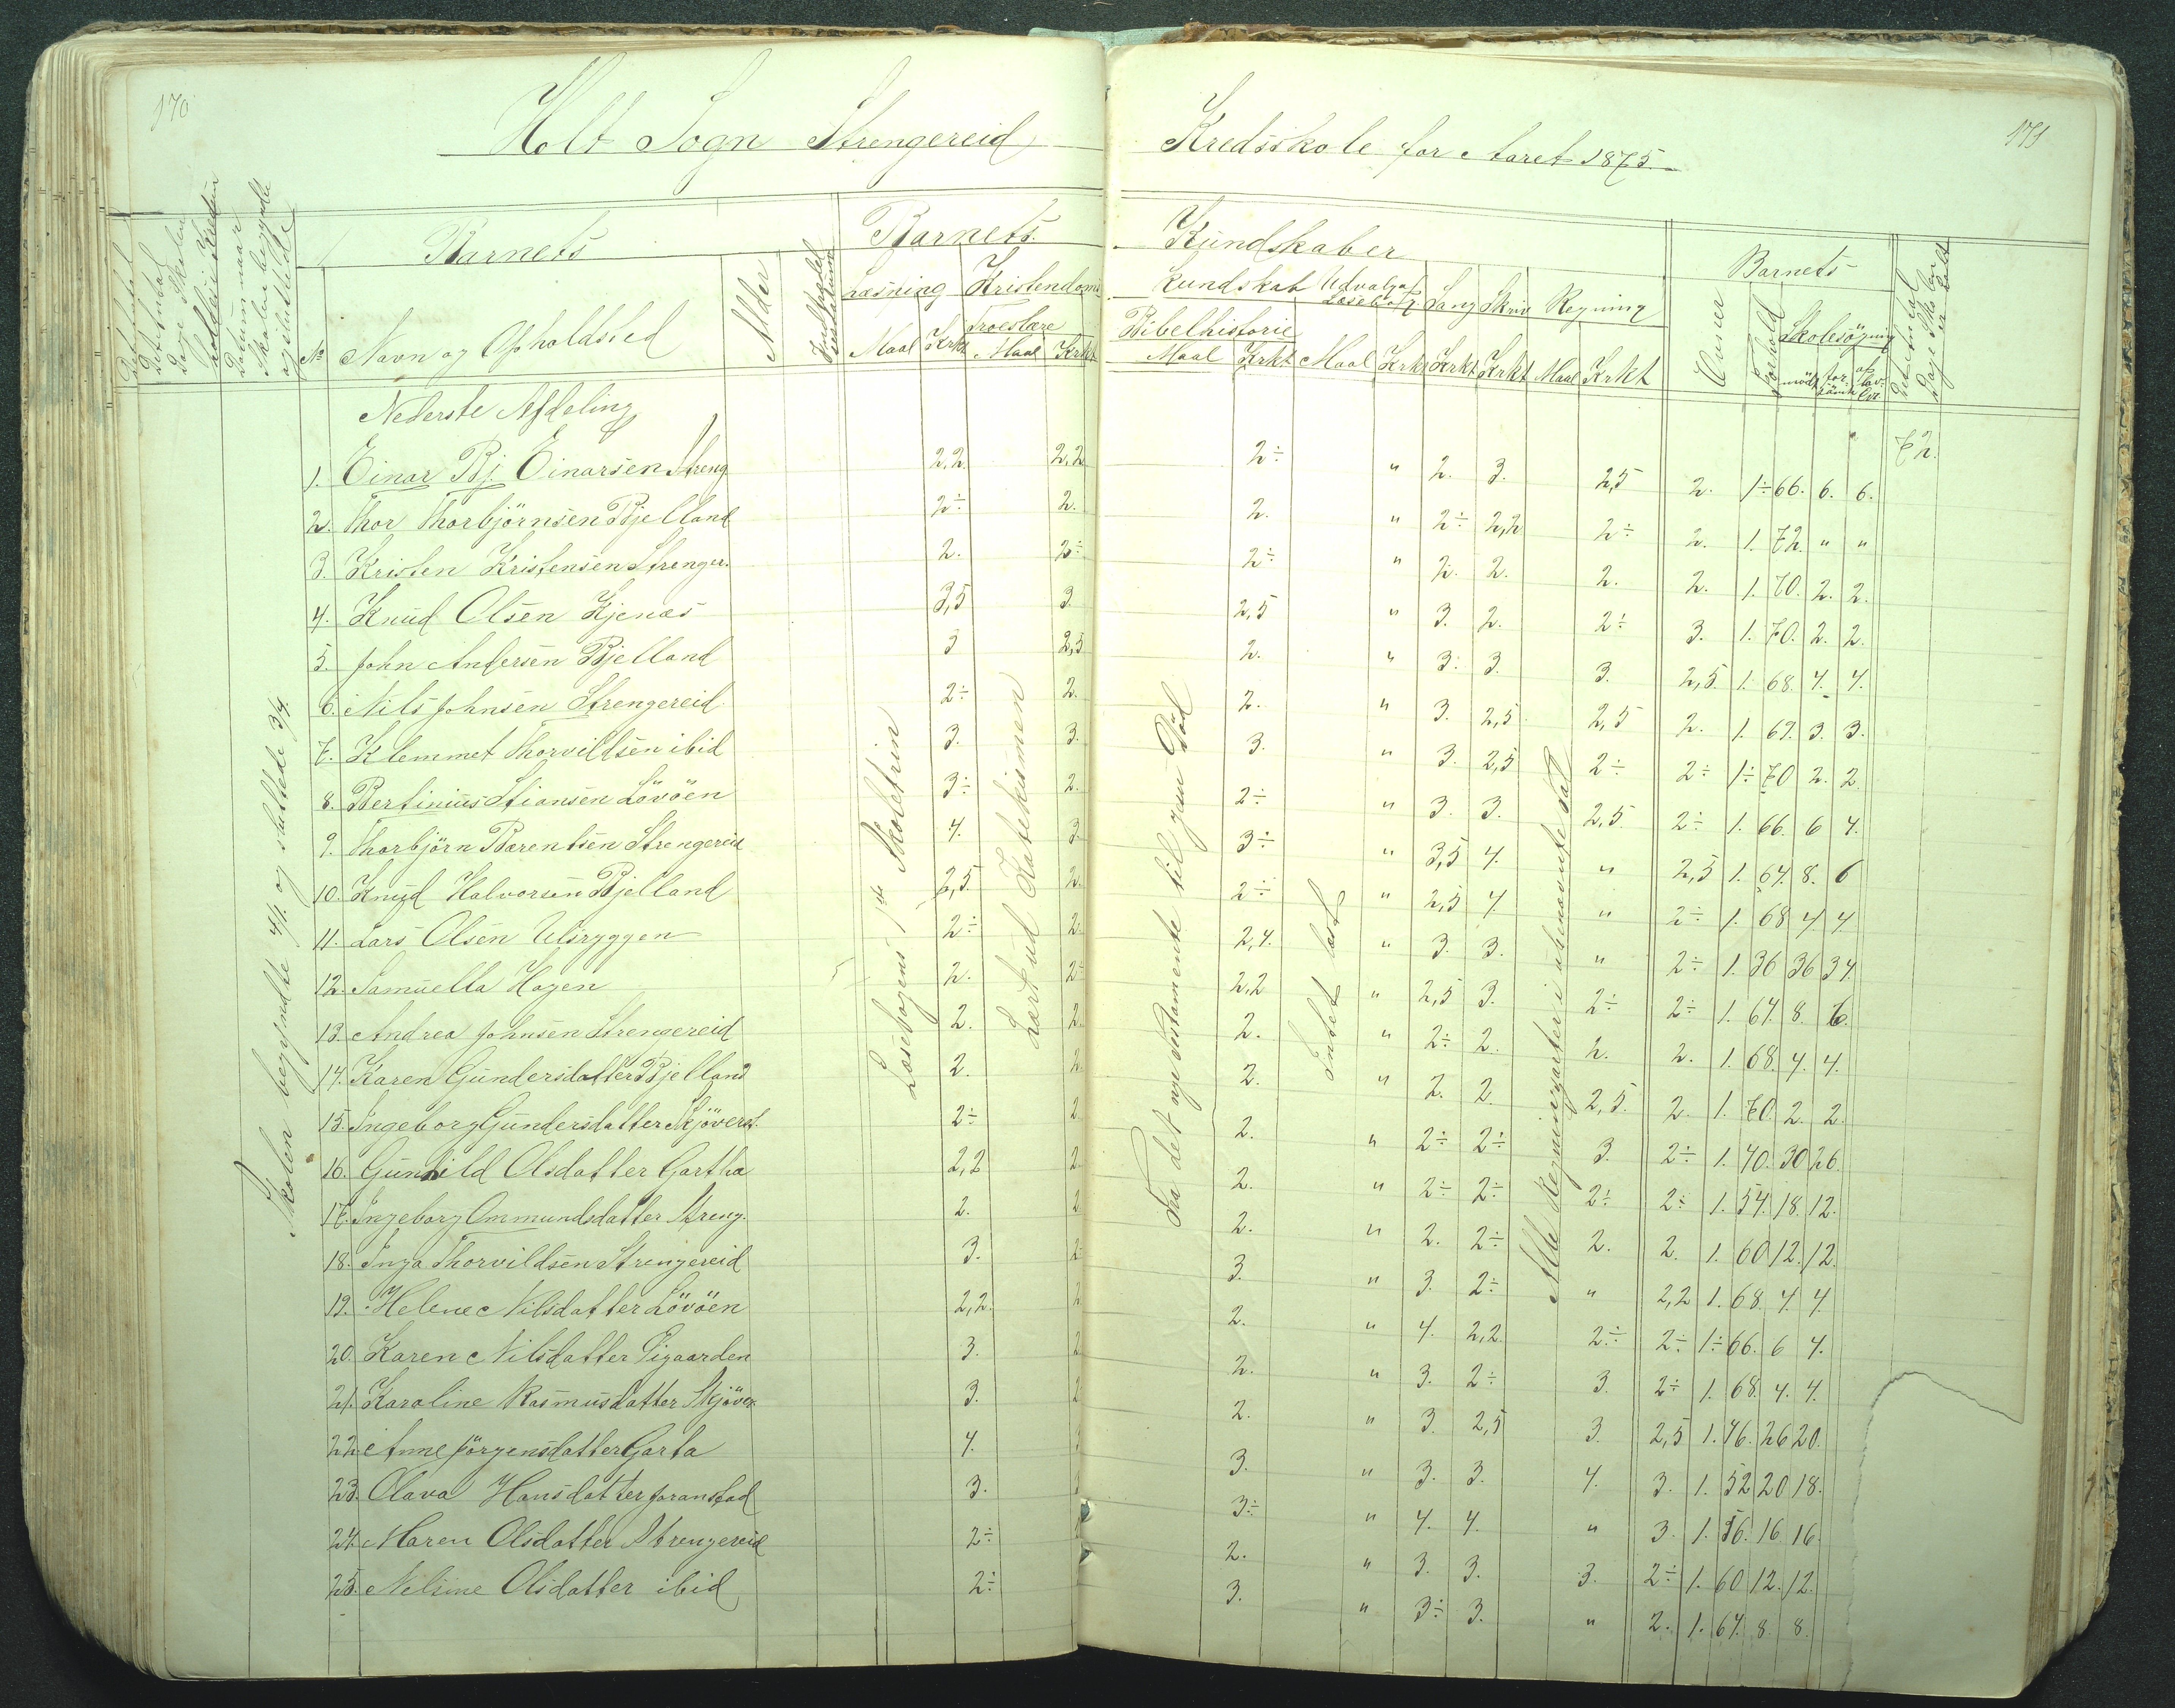 170
171
Holt Sogn Strengereid Kredsskole for Aaret 1875.
Barnets
Barnets Kundskaber
Barnets
Datummaar Skolen begyndte og sluttede
No
Navn og Opholdsted
Alder
Læsning
Kristendoms kundskab
Udvalg af Læsebog.
Sang
Skriv
Regning
Troeslære
Bibelhistorie
Evner
Forhold
Skolesögning
Maal Krkt Maal Krkt
Maal Krkt Maal Krkt Krkt Krkt Maal Krkt
mödt for- sömt af lov. Det Antal Dage Skolen er holdt
Nederste Afdeling
72.
1. Einar Bj. Einarsen Streng 2,2 2,2 2÷ " 2. 3. 2,5 2. 1÷ 66. 6. 6.
2. Thor Thorbjörnsen Bjelland 2÷ 2. 2. " 2÷ 2,2 2÷ 2. 1. 72. " "
3. Kristen Kristensen Strenger. 2. 2÷ 2÷ " 2. 2. 2. 2. 1. 70. 2. 2.
4. Knud Olsen Kjenas 3,5 3 2,5 " 3. 2. 2÷ 3. 1. 70. 2. 2.
5. John Andersen Bjelland 3 2,5 2. " 3. 3. 3. 2,5. 1. 68. 4. 4.
6. Nils Johnsen Strengereid 2÷ 2. 2. " 3. 2,5 2,5 2. 1. 69. 3. 3.
7. Klemmet Thorvildsen ibid 3. 3. 3. " 3. 2,5 2÷ 2÷ 1÷ 70 2. 2
8. Bertinius Stiansen Lövöen 3÷ 2. 2÷ " 3. 3. 2,5. 2÷ 1. 66. 6 4.
9. Thorbjörn Barentsen Strengereid 4. 3. 3÷ " 3,5 4. " 2,5 1. 64. 8. 6
10. Knud Halvorsen Bjelland 2,5. 2. 2÷ " 2,5 4. " 2÷ 1. 68 4 4
11. Lars Olsen Ulsryggen 2÷ 2. 2,4. " 3. 3. " 2÷ 1. 36 36 34.
12. Samuella Hagen 2. 2÷ 2,2 " 2,5 3. 2÷ 2÷ 1. 64. 8. 6.
13. Andrea Johnsen Strengereid 2. 2. 2. " 2÷ 2. 2. 2. 1. 68. 4. 4.
14. Karen Gundersdatter Bjelland 2. 2. 2. " 2. 2. 2,5. 2. 1. 70. 2. 2.
15. Ingeborg Gundersdatter Skjöverst. 2÷ 2. 2. " 2÷ 2÷ 3. 2÷ 1. 40. 30 26.
16. Gunhild Olsdatter Gartha 2,2 2. 2. " 2÷ 2÷ 2÷ 2÷ 1. 54. 18. 12.
17. Ingeborg Ommundsdatter Streng. 2. 2 2. " 2. 2÷ 2. 2. 1. 60 12. 12.
18. Inga Thorvildsen Strengereid 3. 2÷ 3. " 3. 2÷ " 2,2 1. 68. 4. 4.
19. Helene Nilsdatter Lövöen 2,2. 2 2. " 4. 2,2. 2÷ 2÷ 1÷ 66. 6 4.
20. Karen Nilsdatter Pigaarden 3. 2 2. " 3. 2÷ 3. 2÷ 1. 68. 4. 4.
21. Karoline Rasmusdatter Skjöver 3. 2 2. " 3. 2,5 3. 2,5 1. 46. 26 20.
22 Anne Jörgensdatter Garta 4. 3. " 3. 3. 4. 3. 1. 52 20 18.
23. Olava Hansdatter Joranstad 3. 3÷ " 4. 4. " 3. 1. 56. 16. 16.
24. Maren Olsdatter Strengereid 2÷ 2. " 3. 3. 3. 2÷ 1. 60 12. 12.
25. Nelsine Olsdatter ibid 2÷ 3. " 3÷ 3. " 2. 1. 64. 8. 8.
Skolen begyndte 4/1 og sluttede 3/4.
Læsebogens 1ste Skoletrin
Lært ud Katekismen
Fra det nye Testamente til Jesu Död
Intet læst
Alle Regningsarter i ubenævnte Tal